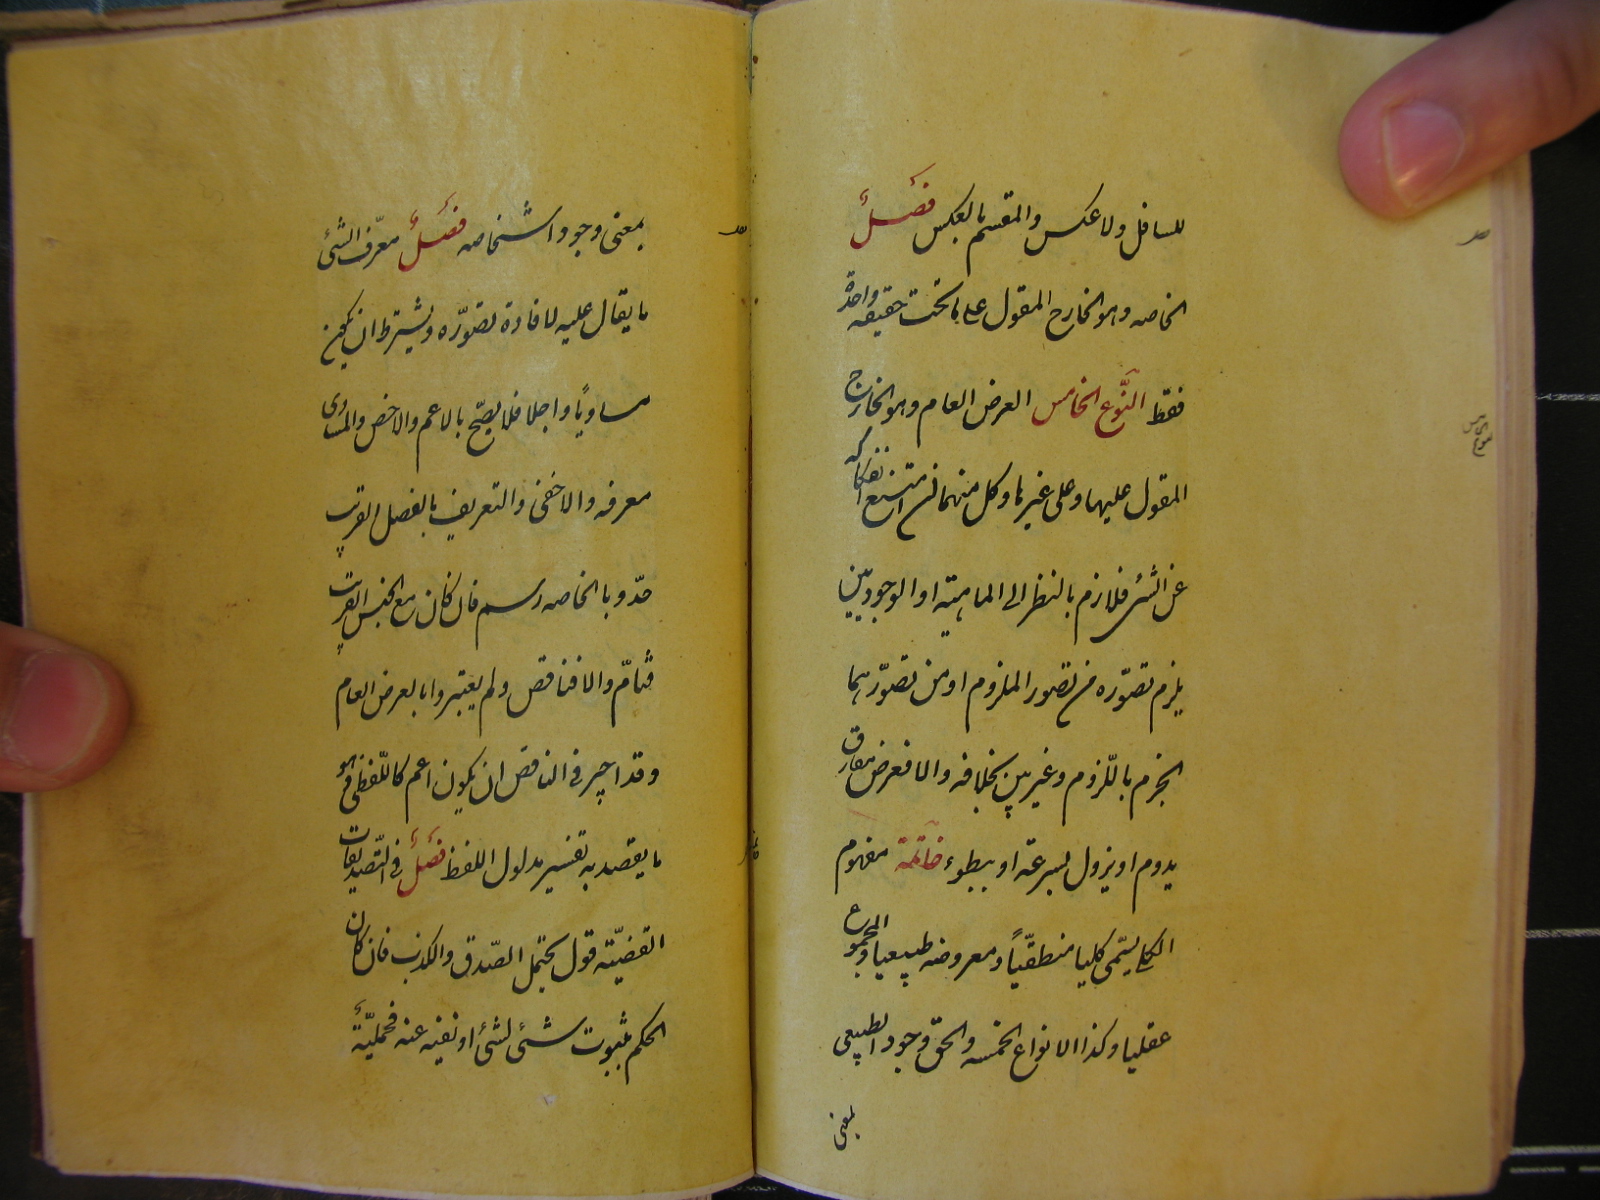 للسافل ولا عكس والمقسم بالعكس فصل
الخاصه وهو الخارج المقول على ما تحت حقيقه واحدة
فقط النّوع الخامس العرض العام وهو الخارج
المقول عليها وعلى غيرها وكل منهما ان امتنع انفكاكه
عن الشئ فلازم بالنظر الى الماهيته او الوجود بين
يلزم تصوّره من تصور الملزوم او من تصوّرهما
الجزم باللّزوم وغير بين بخلافه والا فعرض مفارق
يدوم او يزول بسرعة او ببطوء خاتمة مفهوم
الكلي يسمّى كليا منطقيّاً ومعروضه طبيعيا والمجموع
عقليا وكذا الانواع الخمسه والحق وجود الطبيعى
بمعنى
بمعنى وجود اشخاصه فصل معرّف الشئ
ما يقال عليه لافادة تصوّره ويشترط ان يكون
مساويًا واجلا فلا يصحّ بالاعم والاخص والمساوى
معرفه والاخفى والتعريف بالفصل القريب
حدّ وبالخاصه رسم فان كان مع الجنس القريب
فتامّ والا فناقص ولم يعتبروا بالعرض العام
وقد اجيز في الناقص ان يكون اعم كاللّفظى وهو
ما يقصد به تفسير مدلول اللفظ فصل فى التّصديقات
القضيّة قول يحتمل الصّدق والكذب فان كان
الحكم بثبوت شئ لشئ او نفيه عنه فحمليّة